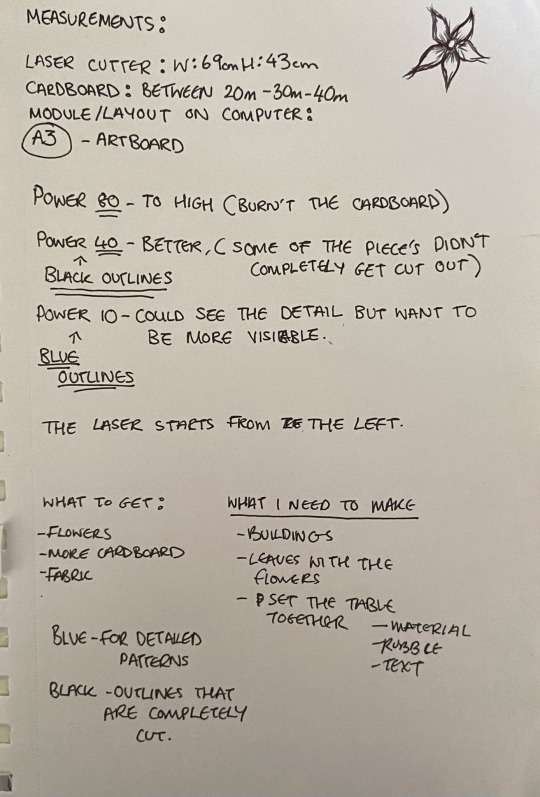 MEASUREMENTS:
LASER CUTTER: W:69cm H:43cm
CARDBOARD: BETWEEN 20m-30m-40m
MODULE/LAYOUT ON COMPUTER:
A3 - ARTBOARD
POWER 80 - TO HIGH (BURN'T THE CARDBOARD)
POWER 40 - BETTER, ( SOME OF THE PIECE'S DIDN'T
COMPLETELY GET CUT OUT)
BLACK OUTLINES
POWER 10 - COULD SEE THE DETAIL BUT WANT TO
BE MORE VISIBLE.
BLUE
OUTLINES
THE LASER STARTS FROM THE LEFT.
WHAT TO GET:
-FLOWERS
-MORE CARDBOARD
-FABRIC
WHAT I NEED TO MAKE
-BUILDINGS
-LEAVES WITH THE
flOWERS
- SET THE TABLE
TOGETHER
-MATERIAL
-RUBBLE
-TEXT
BLUE-FOR DETAILED
PATTERNS
BLACK -OUTLINES THAT
ARE COMPLETELY
CUT.